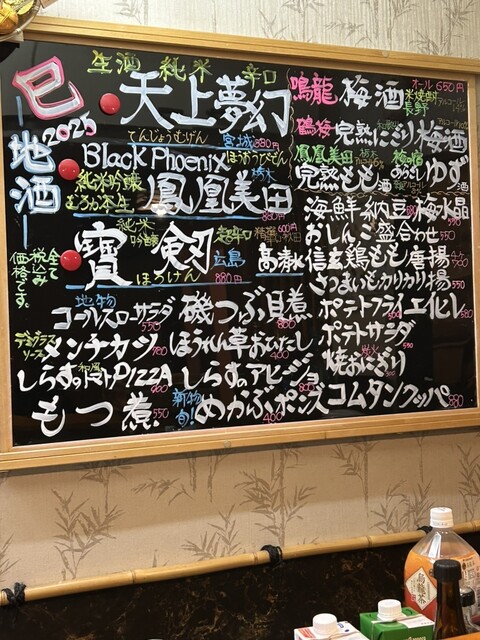 巳
2025
地酒
全て
税込み
価格です。
生酒 純米 辛口
天上夢幻
てんじょうむげん 宮城 880円
Black Phoenix ほうおうびでん
純米吟醸 栃木
むろか本生 鳳凰美田
880円
純米
吟醸 超辛口
寶剱 広島
ほうけん 880円
600円
高清水
鳴龍 梅酒 オール650円
米焼酎
長野
鶴梅 完熟にごり梅酒
鳳凰美田 栃木
完熟もも酒
梅の宿
あらごしゆず酒
海鮮納豆 梅水晶
おしんこ盛合わせ 550
信玄鶏もも唐揚
さつまいもカリカリ揚 550
地物
コールスローサラダ 550
磯つぶ貝煮 800
ポテトフライ
デミグラス
ソース メンチカツ 780
ほうれん草おひたし 400
ポテトサダ
しらすの和風トマトPIZZA 900
しらすのアヒージョ 800
焼おにぎり
もつ煮 550
新物
旬! めかぶポン酢 400
コムタンクッパ 880
烏龍茶